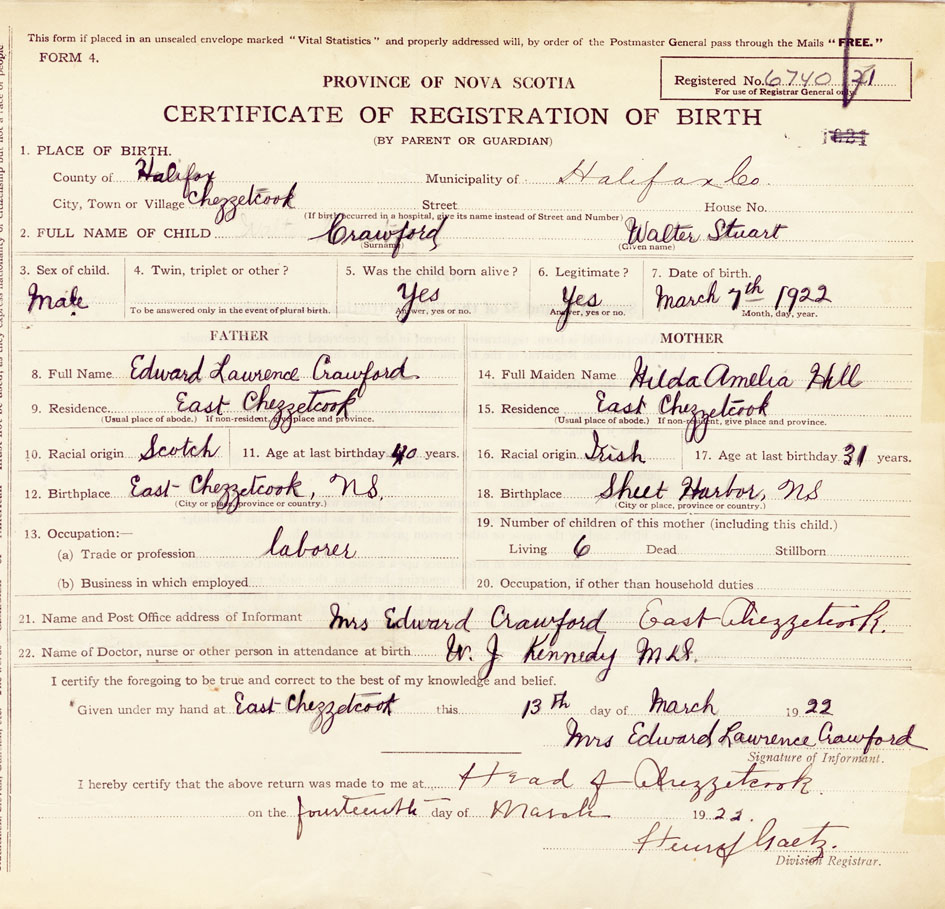 This form if placed in an unsealed envelope marked "Vital Statistics" and properly addressed will, by order of the Postmaster General pass through the Mails "FREE."
FORM 4.
PROVINCE OF NOVA SCOTIA
Registered No. 6740 21
For use of Registrar General only.
CERTIFICATE OF REGISTRATION OF BIRTH
(BY PARENT OR GUARDIAN)
1. PLACE OF BIRTH.
County of Halifax Municipality of Halifax Co.
City, Town or Village Chezzetcook Street House No.
(If birth occurred in a hospital, give its name instead of Street and Number)
2. FULL NAME OF CHILD Crawford Walter Stuart
(Surname) (Given name)
3. Sex of child. 4. Twin, triplet or other? 5. Was the child born alive? 6. Legitimate? 7. Date of birth.
Male Yes Yes March 7th 1922
To be answered only in the event of plural birth. Answer, yes or no. Answer, yes or no. Month, day, year.
FATHER MOTHER
8. Full Name Edward Lawrence Crawford 14. Full Maiden Name Hilda Amelia Hill
9. Residence East Chezzetcook 15. Residence East Chezzetcook
(Usual place of abode.) If non-resident, give place and province. (Usual place of abode.) If non-resident, give place and province.
10. Racial origin Scotch 11. Age at last birthday 40 years. 16. Racial origin Irish 17. Age at last birthday 31 years.
12. Birthplace East Chezzetcook, NS. 18. Birthplace Sheet Harbor, NS
(City or place, province or country.) (City or place, province or country.)
13. Occupation:— 19. Number of children of this mother (including this child.)
(a) Trade or profession laborer Living 6 Dead Stillborn
(b) Business in which employed 20. Occupation, if other than household duties
21. Name and Post Office address of Informant Mrs Edward Crawford East Chezzetcook.
22. Name of Doctor, nurse or other person in attendance at birth W. J Kennedy
I certify the foregoing to be true and correct to the best of my knowledge and belief.
Given under my hand at East Chezzetcook this 13th day of March 1922
Mrs Edward Lawrence Crawford
Signature of Informant.
I hereby certify that the above return was made to me at Head of Chezzetcook.
on the fourteenth day of March 1922.
Henry Gaetz.
Division Registrar.